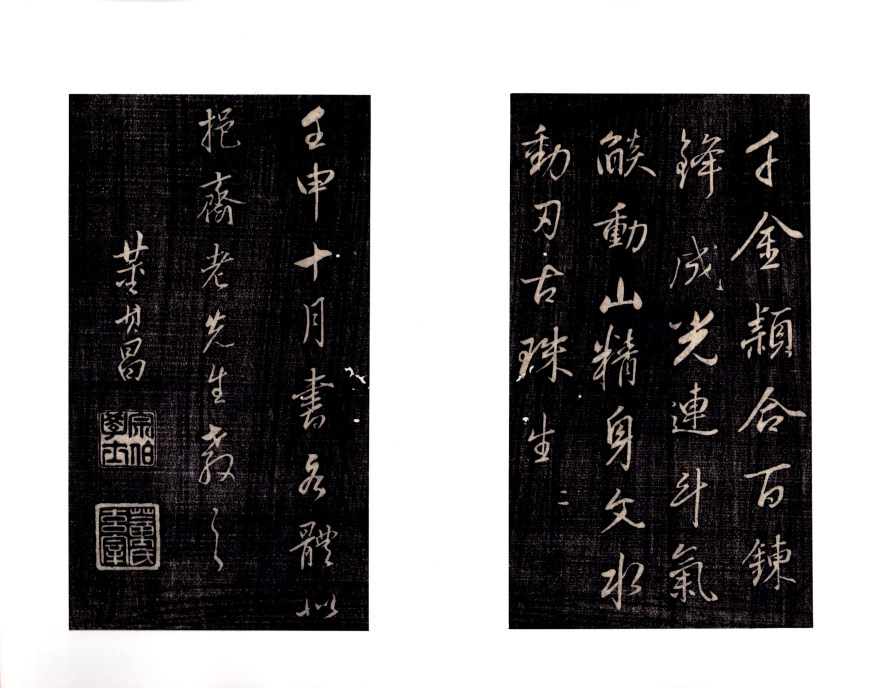 千金穎合百鍊
鋒成光連斗氣
燄動山精身文水
動刃古珠生二
壬申十月書各體似
挹齋老先生教之
董其昌
宗伯學士
董氏玄宰